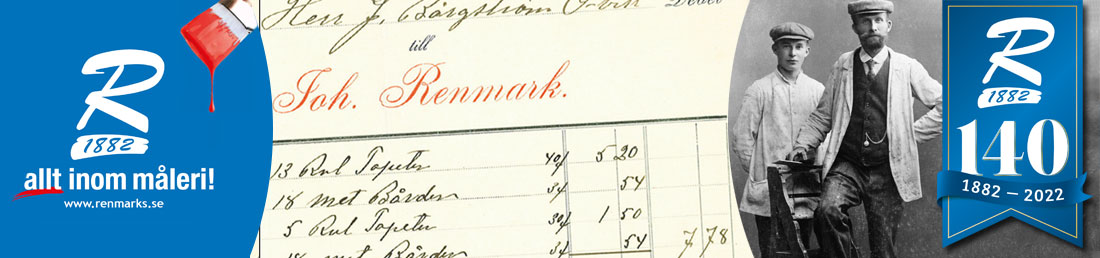 R
1882
allt inom måleri!
www.renmarks.se
Herr J. Bergström
Debet
till
Joh. Renmark.
13 Rul Tapeter 40/ 5 20
18 met Bården 3/ 54
5 Rul Tapeter 30/ 1 50
18 met Bården 3/ 54 7 78
R
1882
140
1882 – 2022